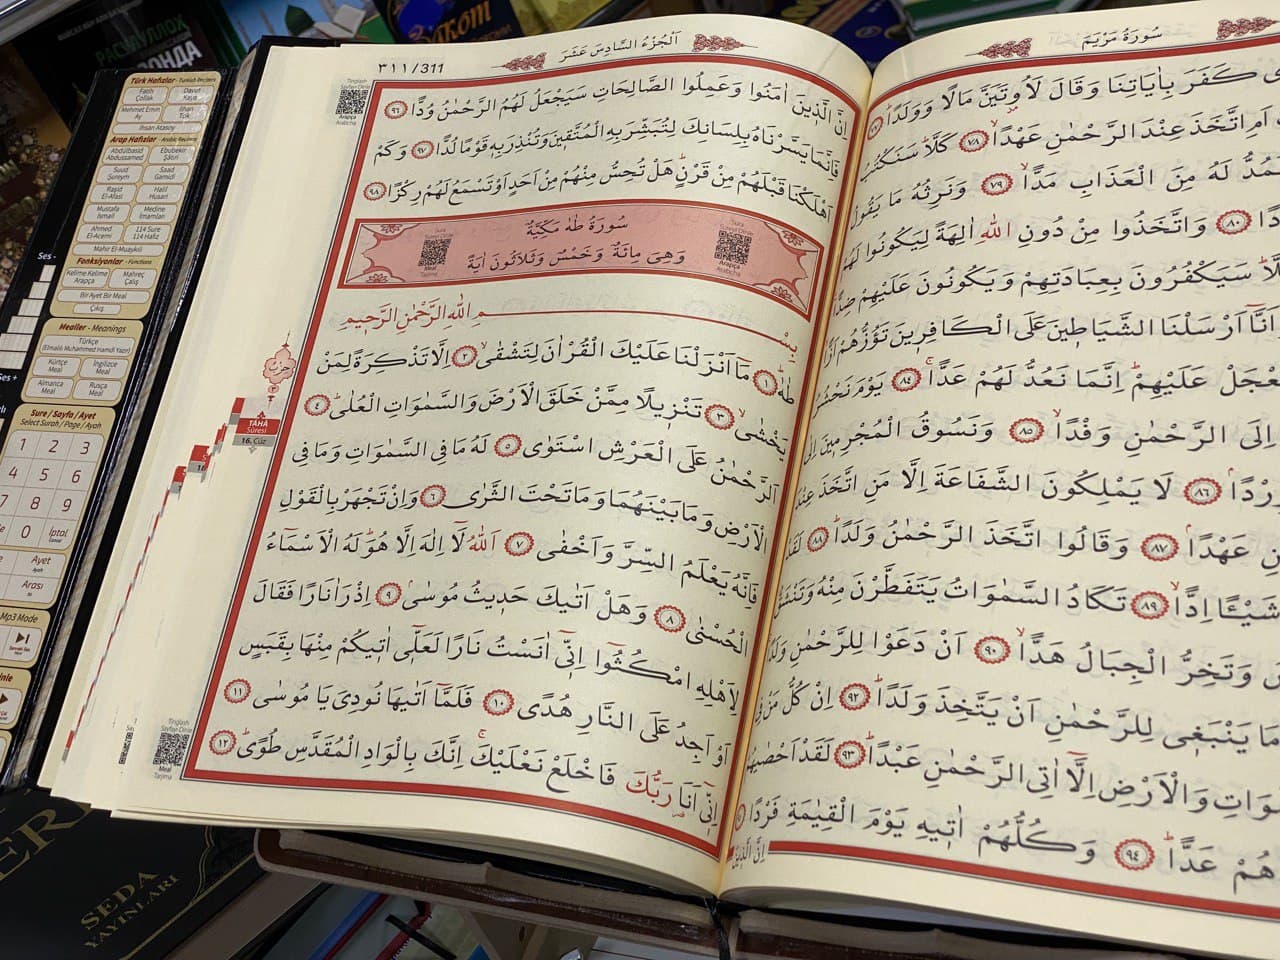 سُورَةُ مَرْيَمَ
كَفَرَ بِاٰيَاتِنَا وَقَالَ لَاُوتَيَنَّ مَالًا وَوَلَدًا ﴿٧٧﴾
اَمِ اتَّخَذَ عِنْدَ الرَّحْمٰنِ عَهْدًا ﴿٧٨﴾ كَلَّا سَنَكْتُبُ
لَهُ مِنَ الْعَذَابِ مَدًّا ﴿٧٩﴾ وَنَرِثُهُ مَا يَقُولُ
﴿٨٠﴾ وَاتَّخَذُوا مِنْ دُونِ اللّٰهِ اٰلِهَةً لِيَكُونُوا لَهُمْ
سَيَكْفُرُونَ بِعِبَادَتِهِمْ وَيَكُونُونَ عَلَيْهِمْ ضِدًّا
اَنَّٓا اَرْسَلْنَا الشَّيَاطِينَ عَلَى الْكَافِرِينَ تَؤُزُّهُمْ اَزًّا
تَعْجَلْ عَلَيْهِمْ اِنَّمَا نَعُدُّ لَهُمْ عَدًّا ﴿٨٤﴾ يَوْمَ نَحْشُرُ
اِلَى الرَّحْمٰنِ وَفْدًا ﴿٨٥﴾ وَنَسُوقُ الْمُجْرِمِينَ اِلٰى
وِرْدًا ﴿٨٦﴾ لَا يَمْلِكُونَ الشَّفَاعَةَ اِلَّا مَنِ اتَّخَذَ عِنْدَ
عَهْدًا ﴿٨٧﴾ وَقَالُوا اتَّخَذَ الرَّحْمٰنُ وَلَدًا ﴿٨٨﴾ لَقَدْ
شَيْـًٔا اِدًّا ﴿٨٩﴾ تَكَادُ السَّمٰوَاتُ يَتَفَطَّرْنَ مِنْهُ وَتَنْشَقُّ
وَتَخِرُّ الْجِبَالُ هَدًّا ﴿٩٠﴾ اَنْ دَعَوْا لِلرَّحْمٰنِ وَلَدًا
مَا يَنْبَغِي لِلرَّحْمٰنِ اَنْ يَتَّخِذَ وَلَدًا ﴿٩٢﴾ اِنْ كُلُّ مَنْ فِي
وَالْاَرْضِ اِلَّٓا اٰتِي الرَّحْمٰنِ عَبْدًا ﴿٩٣﴾ لَقَدْ اَحْصٰيهُمْ
عَدًّا ﴿٩٤﴾ وَكُلُّهُمْ اٰتِيهِ يَوْمَ الْقِيٰمَةِ فَرْدًا
اِنَّ الَّذِينَ
اَلْجُزْءُ السَّادِسَ عَشَرَ
٣١١/311
اِنَّ الَّذِينَ اٰمَنُوا وَعَمِلُوا الصَّالِحَاتِ سَيَجْعَلُ لَهُمُ الرَّحْمٰنُ وُدًّا ﴿٩٦﴾
فَاِنَّمَا يَسَّرْنَاهُ بِلِسَانِكَ لِتُبَشِّرَ بِهِ الْمُتَّقِينَ وَتُنْذِرَ بِهِ قَوْمًا لُدًّا ﴿٩٧﴾ وَكَمْ
اَهْلَكْنَا قَبْلَهُمْ مِنْ قَرْنٍ هَلْ تُحِسُّ مِنْهُمْ مِنْ اَحَدٍ اَوْ تَسْمَعُ لَهُمْ رِكْزًا ﴿٩٨﴾
سُورَةُ طٰهٰ مَكِّيَّةٌ
وَهِيَ مِائَةٌ وَخَمْسٌ وَثَلَاثُونَ اٰيَةً
بِسْمِ اللّٰهِ الرَّحْمٰنِ الرَّحِيمِ
طٰهٰ ﴿١﴾ مَٓا اَنْزَلْنَا عَلَيْكَ الْقُرْاٰنَ لِتَشْقٰى ﴿٢﴾ اِلَّا تَذْكِرَةً لِمَنْ
يَخْشٰى ﴿٣﴾ تَنْزِيلًا مِمَّنْ خَلَقَ الْاَرْضَ وَالسَّمٰوَاتِ الْعُلٰى ﴿٤﴾
اَلرَّحْمٰنُ عَلَى الْعَرْشِ اسْتَوٰى ﴿٥﴾ لَهُ مَا فِي السَّمٰوَاتِ وَمَا فِي
الْاَرْضِ وَمَا بَيْنَهُمَا وَمَا تَحْتَ الثَّرٰى ﴿٦﴾ وَاِنْ تَجْهَرْ بِالْقَوْلِ
فَاِنَّهُ يَعْلَمُ السِّرَّ وَاَخْفٰى ﴿٧﴾ اَللّٰهُ لَٓا اِلٰهَ اِلَّا هُوَ لَهُ الْاَسْمَٓاءُ
الْحُسْنٰى ﴿٨﴾ وَهَلْ اَتٰيكَ حَدِيثُ مُوسٰى ﴿٩﴾ اِذْ رَاٰ نَارًا فَقَالَ
لِاَهْلِهِ امْكُثُٓوا اِنِّٓي اٰنَسْتُ نَارًا لَعَلِّٓي اٰتِيكُمْ مِنْهَا بِقَبَسٍ
اَوْ اَجِدُ عَلَى النَّارِ هُدًى ﴿١٠﴾ فَلَمَّٓا اَتٰيهَا نُودِيَ يَا مُوسٰى ﴿١١﴾
اِنِّٓي اَنَا رَبُّكَ فَاخْلَعْ نَعْلَيْكَ اِنَّكَ بِالْوَادِ الْمُقَدَّسِ طُوًى ﴿١٢﴾
حزب
TÂHÂ
Sûresi
16. Cüz
Türk Hafızlar - Turkish Reciters
Fatih Çollak
Davut Kaya
Mehmet Emin Ay
İlhan Tok
İhsan Atasoy
Arap Hafızlar - Arabic Reciters
Abdulbasid Abdussamed
Ebubekir Şâtıri
Suud Şureym
Saad Gamidi
Raşid El-Afasi
Halil Husari
Mustafa İsmail
Medine İmamları
Ahmed El-Acemi
114 Sure 114 Hafız
Mahir El-Muaykili
Fonksiyonlar - Functions
Kelime Kelime Arapça
Mahreç Çalış
Bir Ayet Bir Meal
Çıkış
Mealler - Meanings
Türkçe
(Elmalılı Muhammed Hamdi Yazır)
Kürtçe Meal
İngilizce Meal
Almanca Meal
Rusça Meal
Sure / Sayfa / Ayet
Select Surah / Page / Ayah
1 2 3
4 5 6
7 8 9
0 İptal
Ayet
Arası
Mp3 Mode
Ses -
Ses +
SEDA
YAYINLARI